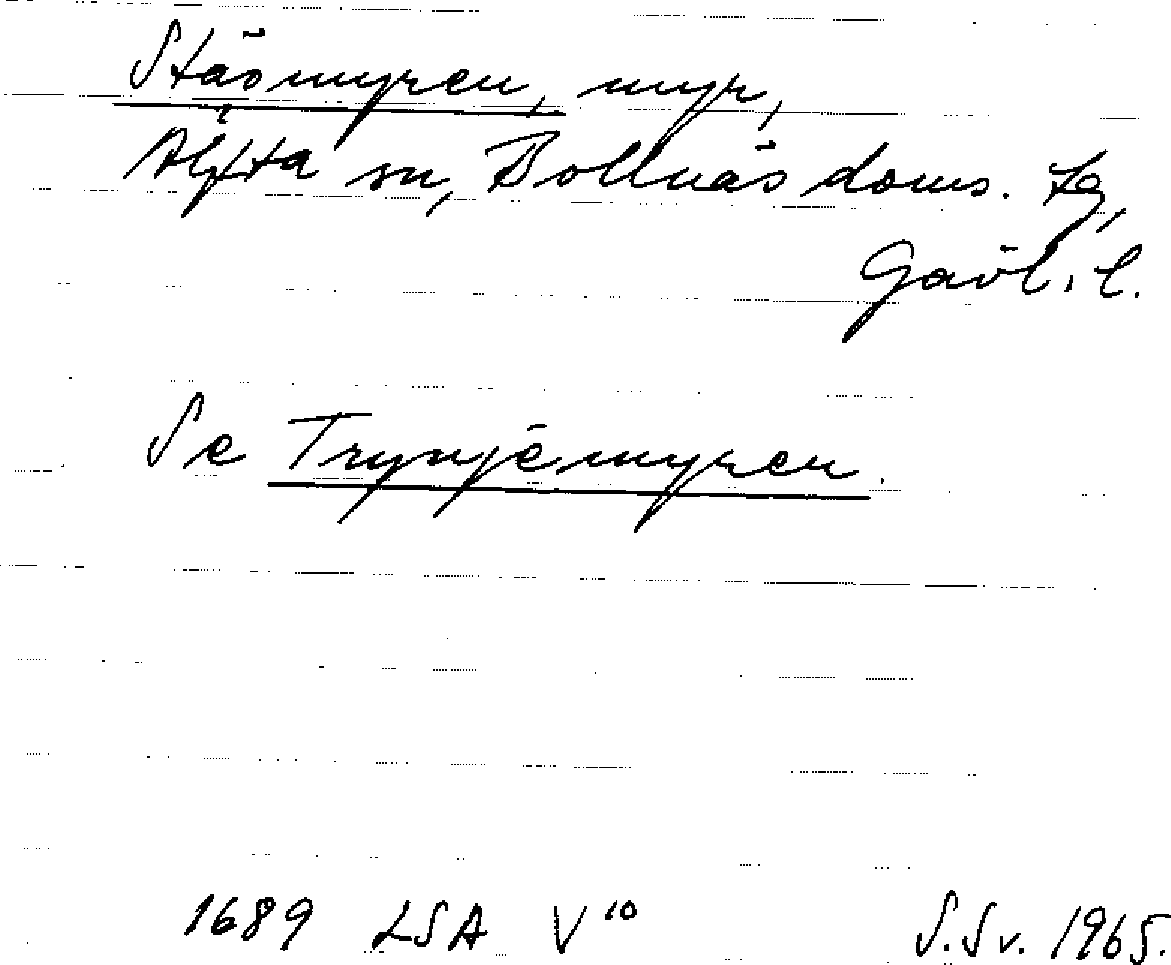 Stäsmyren, myr,
Alfta sn, Bollnäs doms. Lg,
Gävl. l.
Se Trynjémyren.
1689 LSA V¹⁰ S.Sv. 1965.